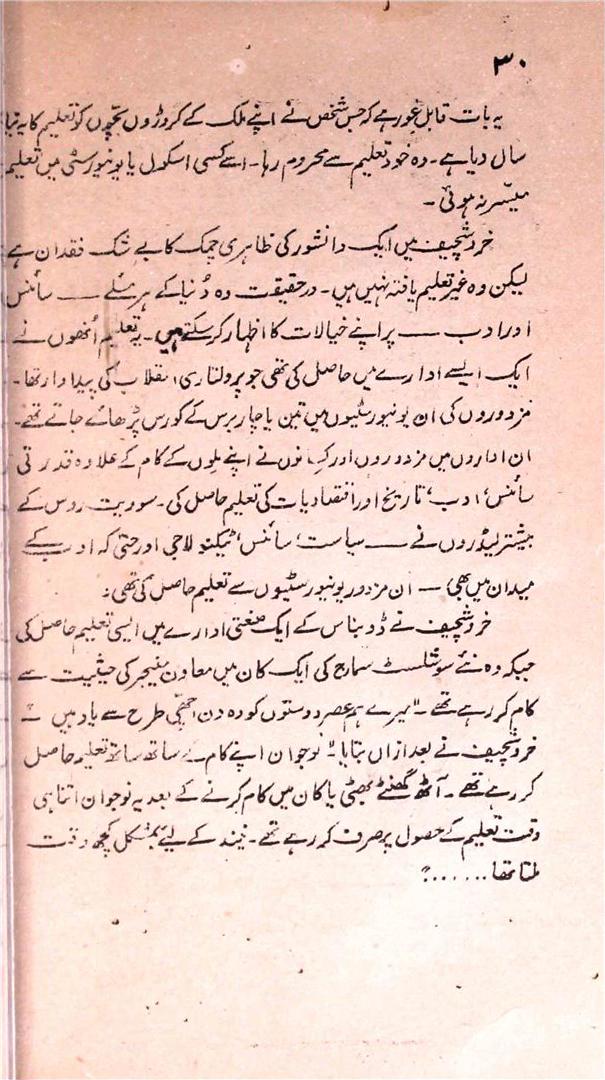 ۳۰
یہ بات قابل غور ہے کہ جس شخص نے اپنے ملک کے کروڑوں بچوں کو تعلیم کا یہ نیا
سال دیا ہے۔ وہ خود تعلیم سے محروم رہا۔ اسے کسی اسکول یا یونیورسٹی میں تعلیم
میسّر نہ ہوئی۔
خروشچیف میں ایک دانشور کی ظاہری چمک کا بے شک فقدان ہے
لیکن وہ غیر تعلیم یافتہ نہیں ہیں۔ درحقیقت وہ دُنیا کے ہر مسئلے — سائنس
اور ادب — پر اپنے خیالات کا اظہار کر سکتے ہیں۔ یہ تعلیم اُنھوں نے
ایک ایسے ادارے میں حاصل کی تھی جو پرولتاری انقلاب کی پیداوار تھا۔
مزدوروں کی ان یونیورسٹیوں میں تین یا چار برس کے کورس پڑھائے جاتے تھے۔
ان اداروں میں مزدوروں اور کسانوں نے اپنے ملوں کے کام کے علاوہ قدرتی
سائنس، ادب، تاریخ اور اقتصادیات کی تعلیم حاصل کی۔ سوویت روس کے
بیشتر لیڈروں نے — سیاست، سائنس، ٹیکنولاجی اور حتیٰ کہ ادب کے
میدان میں بھی — ان مزدور یونیورسٹیوں سے تعلیم حاصل کی تھی۔
خروشچیف نے ڈونباس کے ایک صنعتی ادارے میں ایسی تعلیم حاصل کی
جبکہ وہ نئے سوشلسٹ سماج کی ایک کان میں معاون منیجر کی حیثیت سے
کام کر رہے تھے۔ "میرے ہم عصر دوستوں کو وہ دن اچھی طرح سے یاد ہیں"
خروشچیف نے بعد ازاں بتایا "نوجوان اپنے کام کے ساتھ ساتھ تعلیم حاصل
کر رہے تھے۔ آٹھ گھنٹے بھٹی یا کان میں کام کرنے کے بعد یہ نوجوان اتنا ہی
وقت تعلیم کے حصول پر صرف کر رہے تھے۔ نیند کے لیئے بمشکل کچھ وقت
ملتا تھا......"